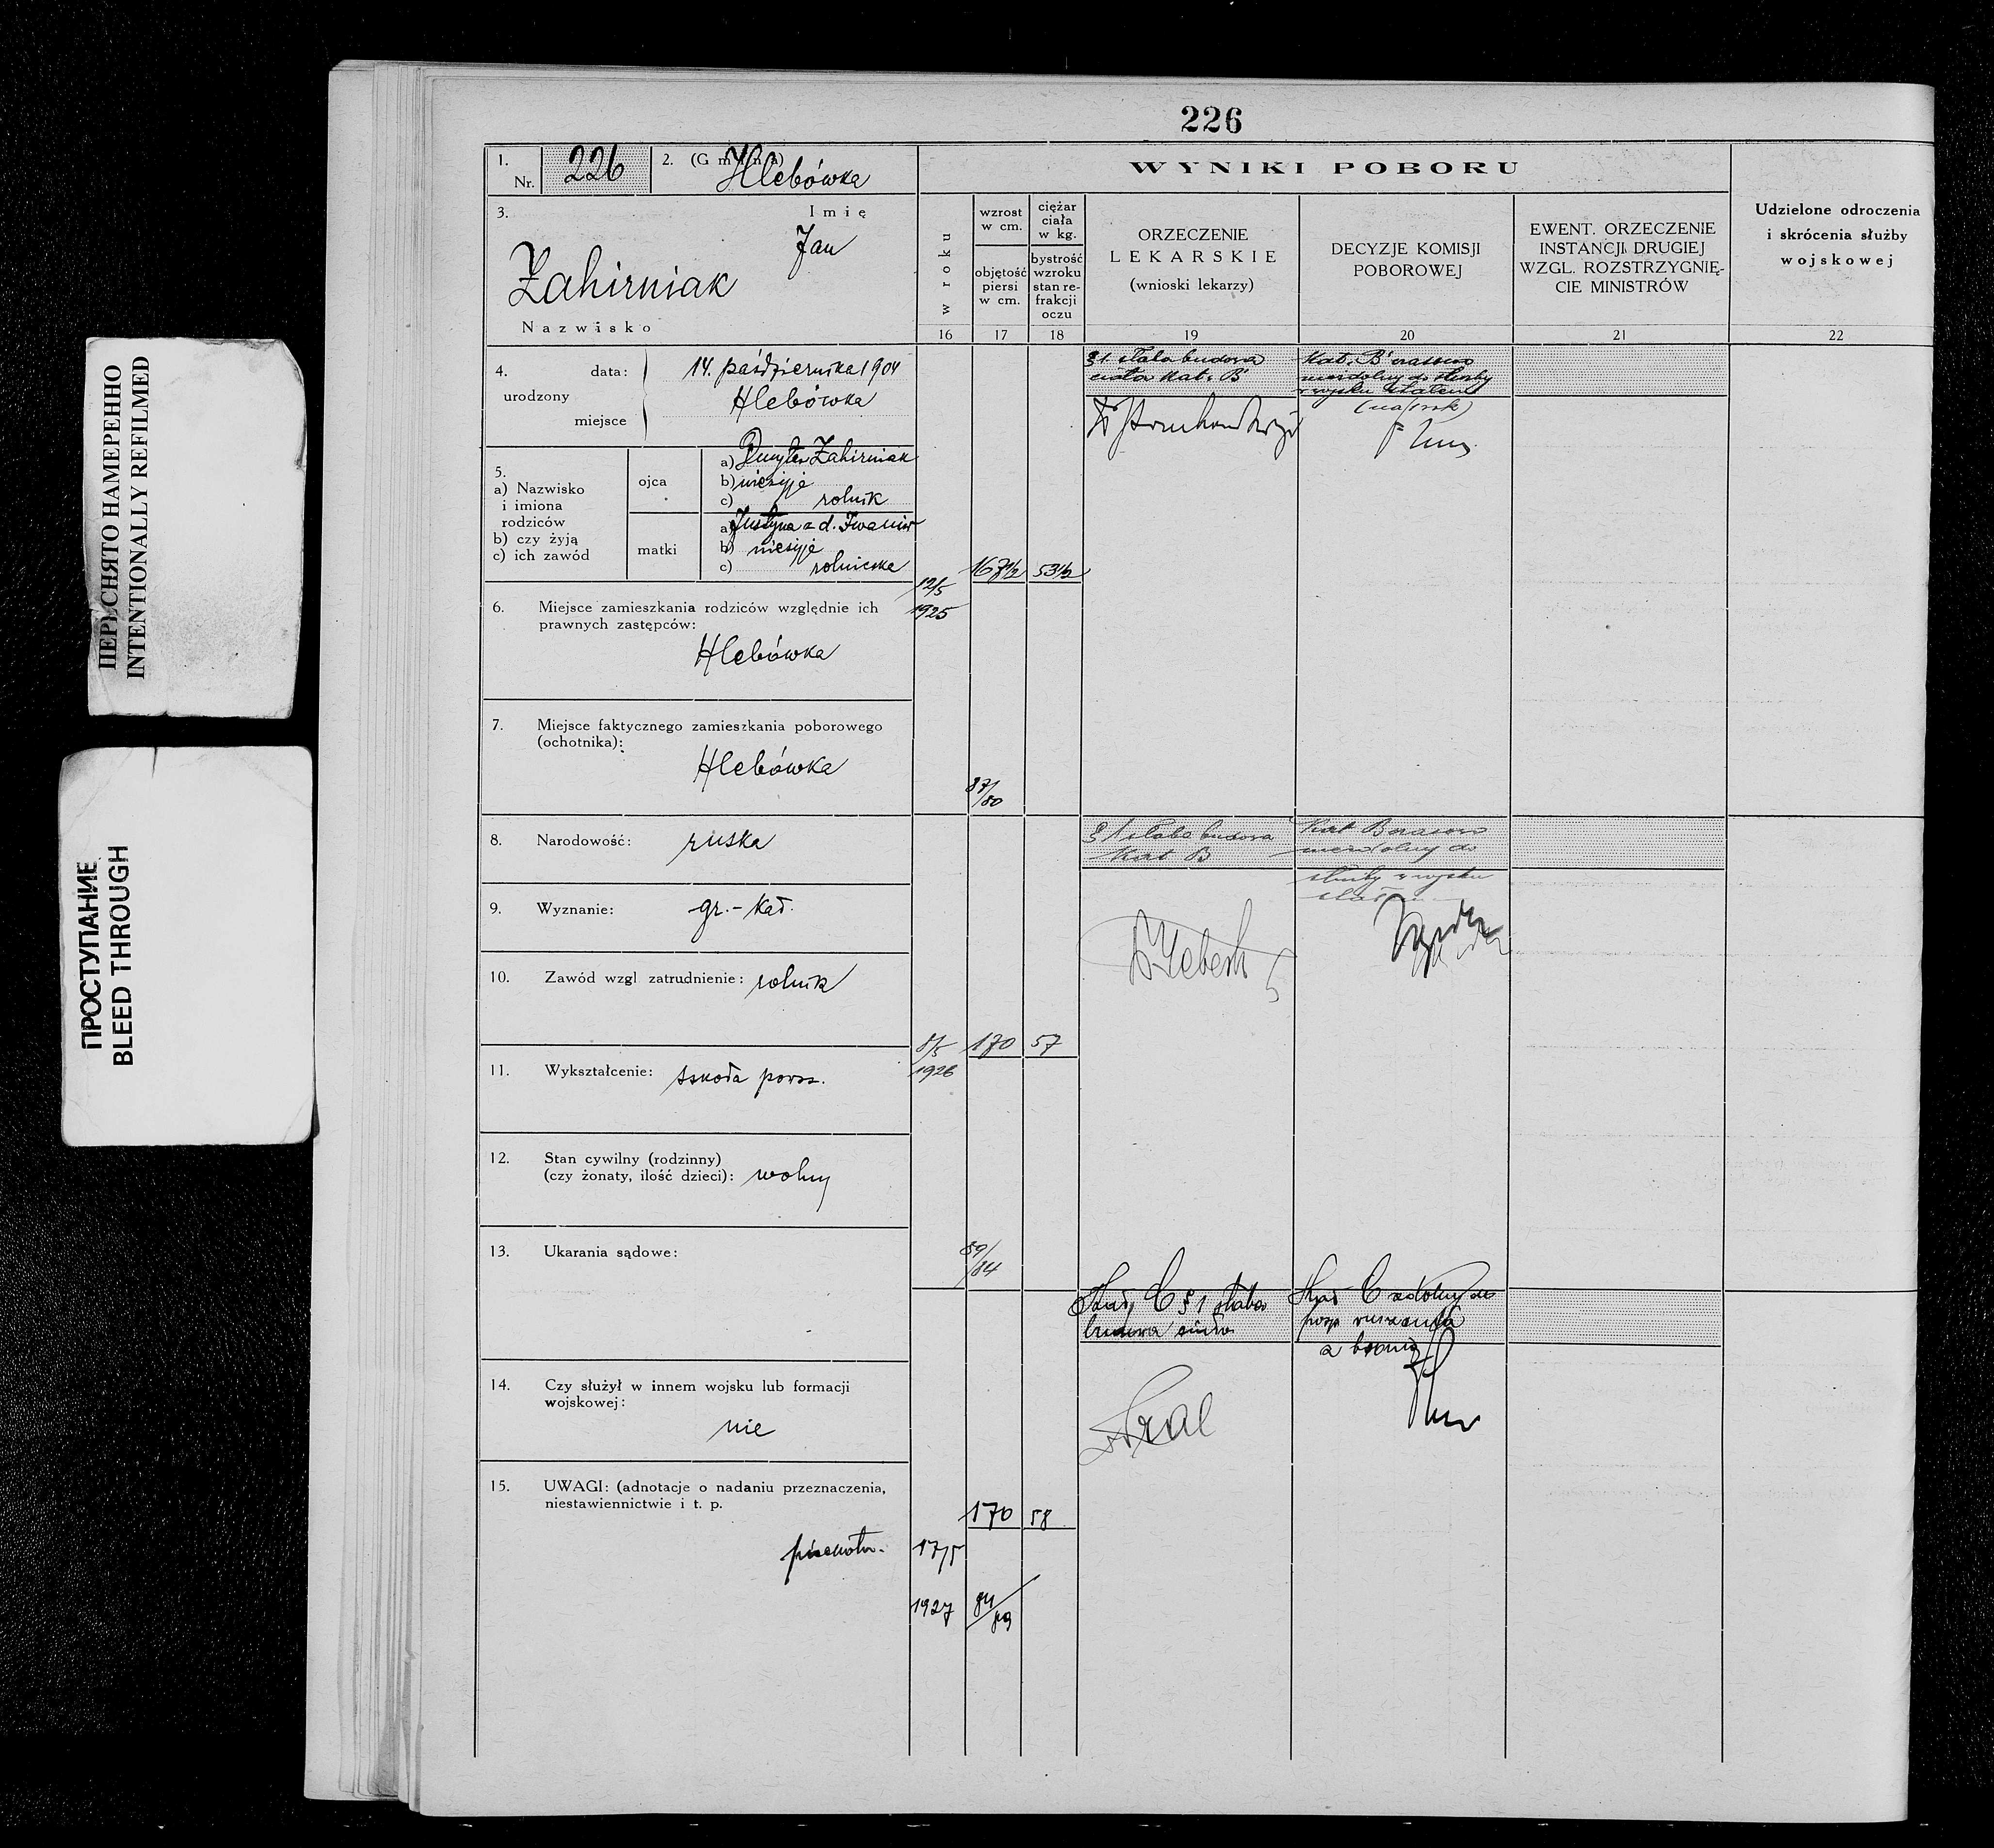 ПЕРЕСНЯТО НАМЕРЕННО
INTENTIONALLY REFILMED
ПРОСТУПАНИЕ
BLEED THROUGH
226
1.
Nr.
226
2. (Gmina)
Hlebówka
3.
Imię
Jan
Zahirniak
Nazwisko
4.
data:
14. października 1904
urodzony
Hlebówka
miejsce
5.
a) Nazwisko
i imiona
rodziców
b) czy żyją
c) ich zawód
ojca
a) Zahirniak
b) nieżyje
c) rolnik
matki
a) Justyna z d. Iwaniw
b) nieżyje
c) rolniczka
6. Miejsce zamieszkania rodziców względnie ich
prawnych zastępców:
Hlebówka
7. Miejsce faktycznego zamieszkania poborowego
(ochotnika):
Hlebówka
8. Narodowość: ruska
9. Wyznanie: gr.-kat.
10. Zawód wzgl. zatrudnienie: rolnik
11. Wykształcenie: szkoła powsz.
12. Stan cywilny (rodzinny)
(czy żonaty, ilość dzieci): wolny
13. Ukarania sądowe:
14. Czy służył w innem wojsku lub formacji
wojskowej:
nie
15. UWAGI: (adnotacje o nadaniu przeznaczenia,
niestawiennictwie i t. p.
WYNIKI POBORU
w roku
16
wzrost
w cm.
objętość
piersi
w cm.
17
ciężar
ciała
w kg.
bystrość
wzroku
stan re-
frakcji
oczu
18
ORZECZENIE
LEKARSKIE
(wnioski lekarzy)
19
DECYZJE KOMISJI
POBOROWEJ
20
EWENT. ORZECZENIE
INSTANCJI DRUGIEJ
WZGL. ROZSTRZYGNIĘ-
CIE MINISTRÓW
21
Udzielone odroczenia
i skrócenia służby
wojskowej
22
12/5
1925
167 1/2
53 1/2
87/80
§ 1. słaba budowa
ciała Kat. B
Kat. B czasowo
niezdolny do służby
w wojsku stałem
8/5
1926
170
57
89/84
§ 1 słaba budowa
Kat B
Kat B czasowo
niezdolny do
służby w wojsku
17/5
1927
170
58
C § 1 słaba
budowa ciała
C zdolny do
posp ruszenia
z bronią